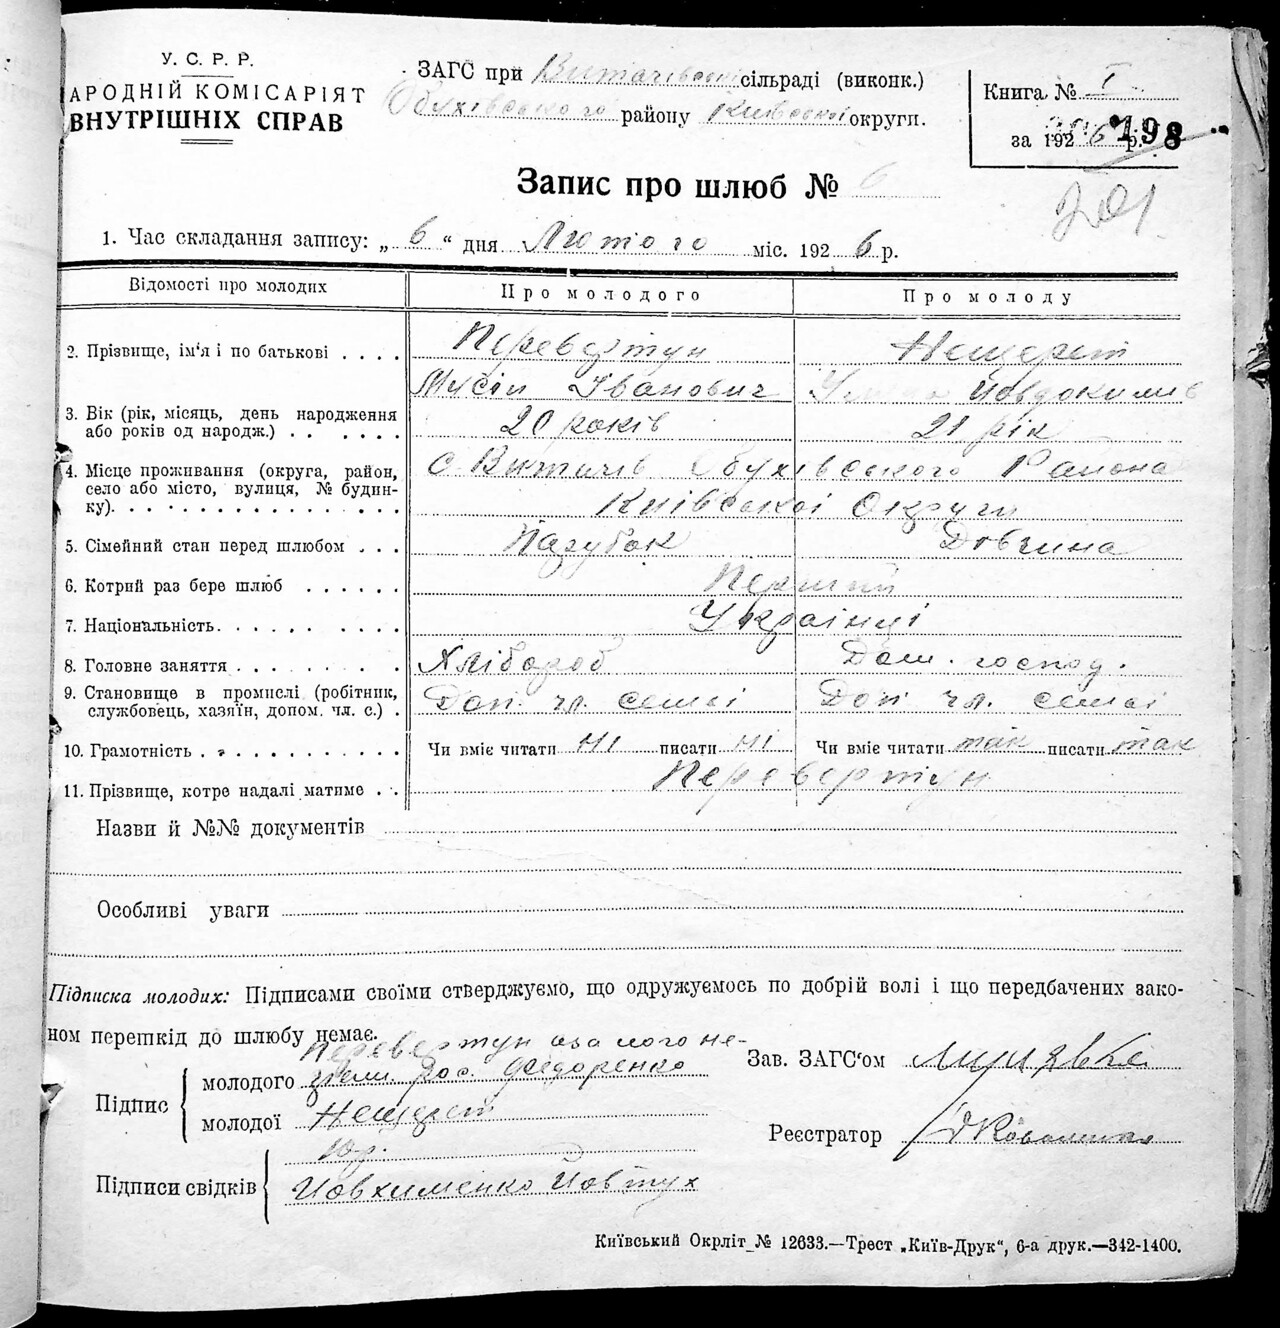 У. С. Р. Р.
НАРОДНІЙ КОМІСАРІЯТ
ВНУТРІШНІХ СПРАВ
ЗАГС при Витачівській сільраді (виконк.)
Обухівського району Київської округи.
Книга № I
за 1926 р.
198
201
Запис про шлюб № 6
1. Час складання запису: „ 6 “ дня Лютого міс. 1926 р.
Відомості про молодих Про молодого Про молоду
2. Прізвище, ім'я і по батькові . . . . Перевертун Нещерет
Мусій Іванович Йовдокимів
3. Вік (рік, місяць, день народження
або років од народж.) . . . . . . 20 років 21 рік
4. Місце проживання (округа, район, с Витачів Обухівського Района
село або місто, вулиця, № будин-
ку). . . . . . . . . . . . . . . . Київської Округи
5. Сімейний стан перед шлюбом . . . Парубок Дівчина
6. Котрий раз бере шлюб . . . . . . Перший
7. Національність. . . . . . . . . . Українці
8. Головне заняття . . . . . . . . . Хлібороб Дом. господ.
9. Становище в промислі (робітник, Доп. чл. семьі Доп. чл. семьі
службовець, хазяїн, допом. чл. с.) .
10. Грамотність . . . . . . . . . . . Чи вміє читати ні писати ні Чи вміє читати так писати так
11. Прізвище, котре надалі матиме . . . Перевертун
Назви й №№ документів
Особливі уваги
Підписка молодих: Підписами своїми стверджуємо, що одружуємось по добрій волі і що передбачених зако-
ном перешкід до шлюбу немає.
Перевертун а за його не-
Підпис молодого грам. рос. Федоренко
молодої Нещерет
Зав. ЗАГС'ом
Реєстратор
Підписи свідків
Йовхименко Йовтух
Київський Окрліт № 12633.—Трест „Київ-Друк“, 6-а друк.—342-1400.